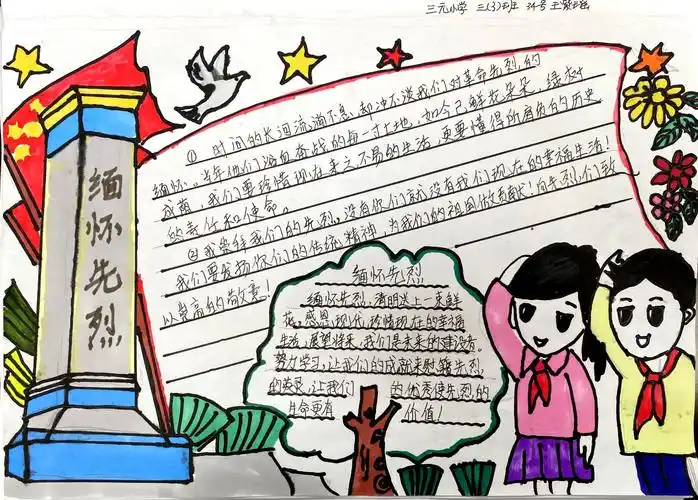 三元小学 三(3)班 34号
缅怀先烈
① 时间的长河流淌不息,却冲不淡我们对革命先烈的
缅怀。当年他们浴血奋战的每一寸土地,如今已鲜花朵朵,绿树
成茵。我们要珍惜现在来之不易的生活,更要懂得所肩负的历史
的责任和使命。
②我崇拜我们的先烈,没有你们就没有我们现在的幸福生活!
我们要发扬你们的传统精神,为我们的祖国做贡献!向先烈们致
以崇高的敬意!
缅怀先烈
缅怀先烈,清明送上一束鲜
花。感恩现代,珍惜现在的幸福
生活。展望将来,我们是未来的建设者。
努力学习,让我们的成就来慰籍先烈
的英灵,让我们 的优秀使先烈的
生命更有 价值!